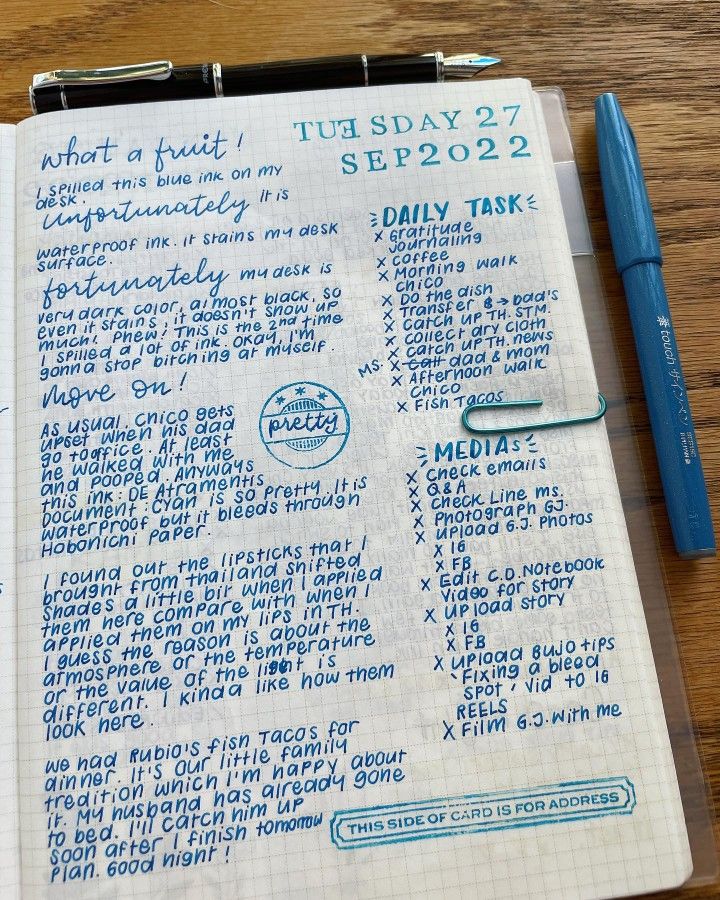 TUESDAY 27
SEP 2022
what a fruit!
I spilled this blue ink on my
desk.
unfortunately it is
waterproof ink. It stains my desk
surface.
fortunately my desk is
very dark color, almost black, so
even it stains, it doesn't show up
much! Phew! This is the 2nd time
I spilled a lot of ink. Okay, I'm
gonna stop bitching at myself.
move on!
As usual, Chico gets
upset when his dad
go to office. At least
he walked with me
and pooped. Anyways
this ink: DE Atramentis
Document: Cyan is so pretty. It is
waterproof but it bleeds through
Hobonichi paper.
pretty
I found out the lipsticks that I
brought from Thailand shifted
shades a little bit when I applied
them here compare with when I
applied them on my lips in TH.
I guess the reason is about the
atmosphere or the temperature
or the value of the light is
different. I kinda like how them
look here.
We had Rubio's fish tacos for
dinner. It's our little family
tredition which I'm happy about
it. My husband has already gone
to bed. I'll catch him up
soon after I finish tomorrow
plan. Good night!
DAILY TASK
x Gratitude
Journaling
x Coffee
x Morning walk
Chico
x Do the dish
x Transfer $ → dad's
x Catch up TH. STM.
x Collect dry cloth
x Catch up TH. news
Ms. x Call dad & mom
x Afternoon walk
Chico
x Fish Tacos
MEDIAS
x Check emails
x Q&A
x Check Line ms.
x Photograph G.J.
x Upload G.J. Photos
x IG
x FB
x Edit C.D. Notebook
Video for story
x Upload story
x IG
x FB
x Upload Bujo tips
'Fixing a bleed
spot' Vid to IG
REELS
x Film G.J. With me
THIS SIDE OF CARD IS FOR ADDRESS
touch サインペン